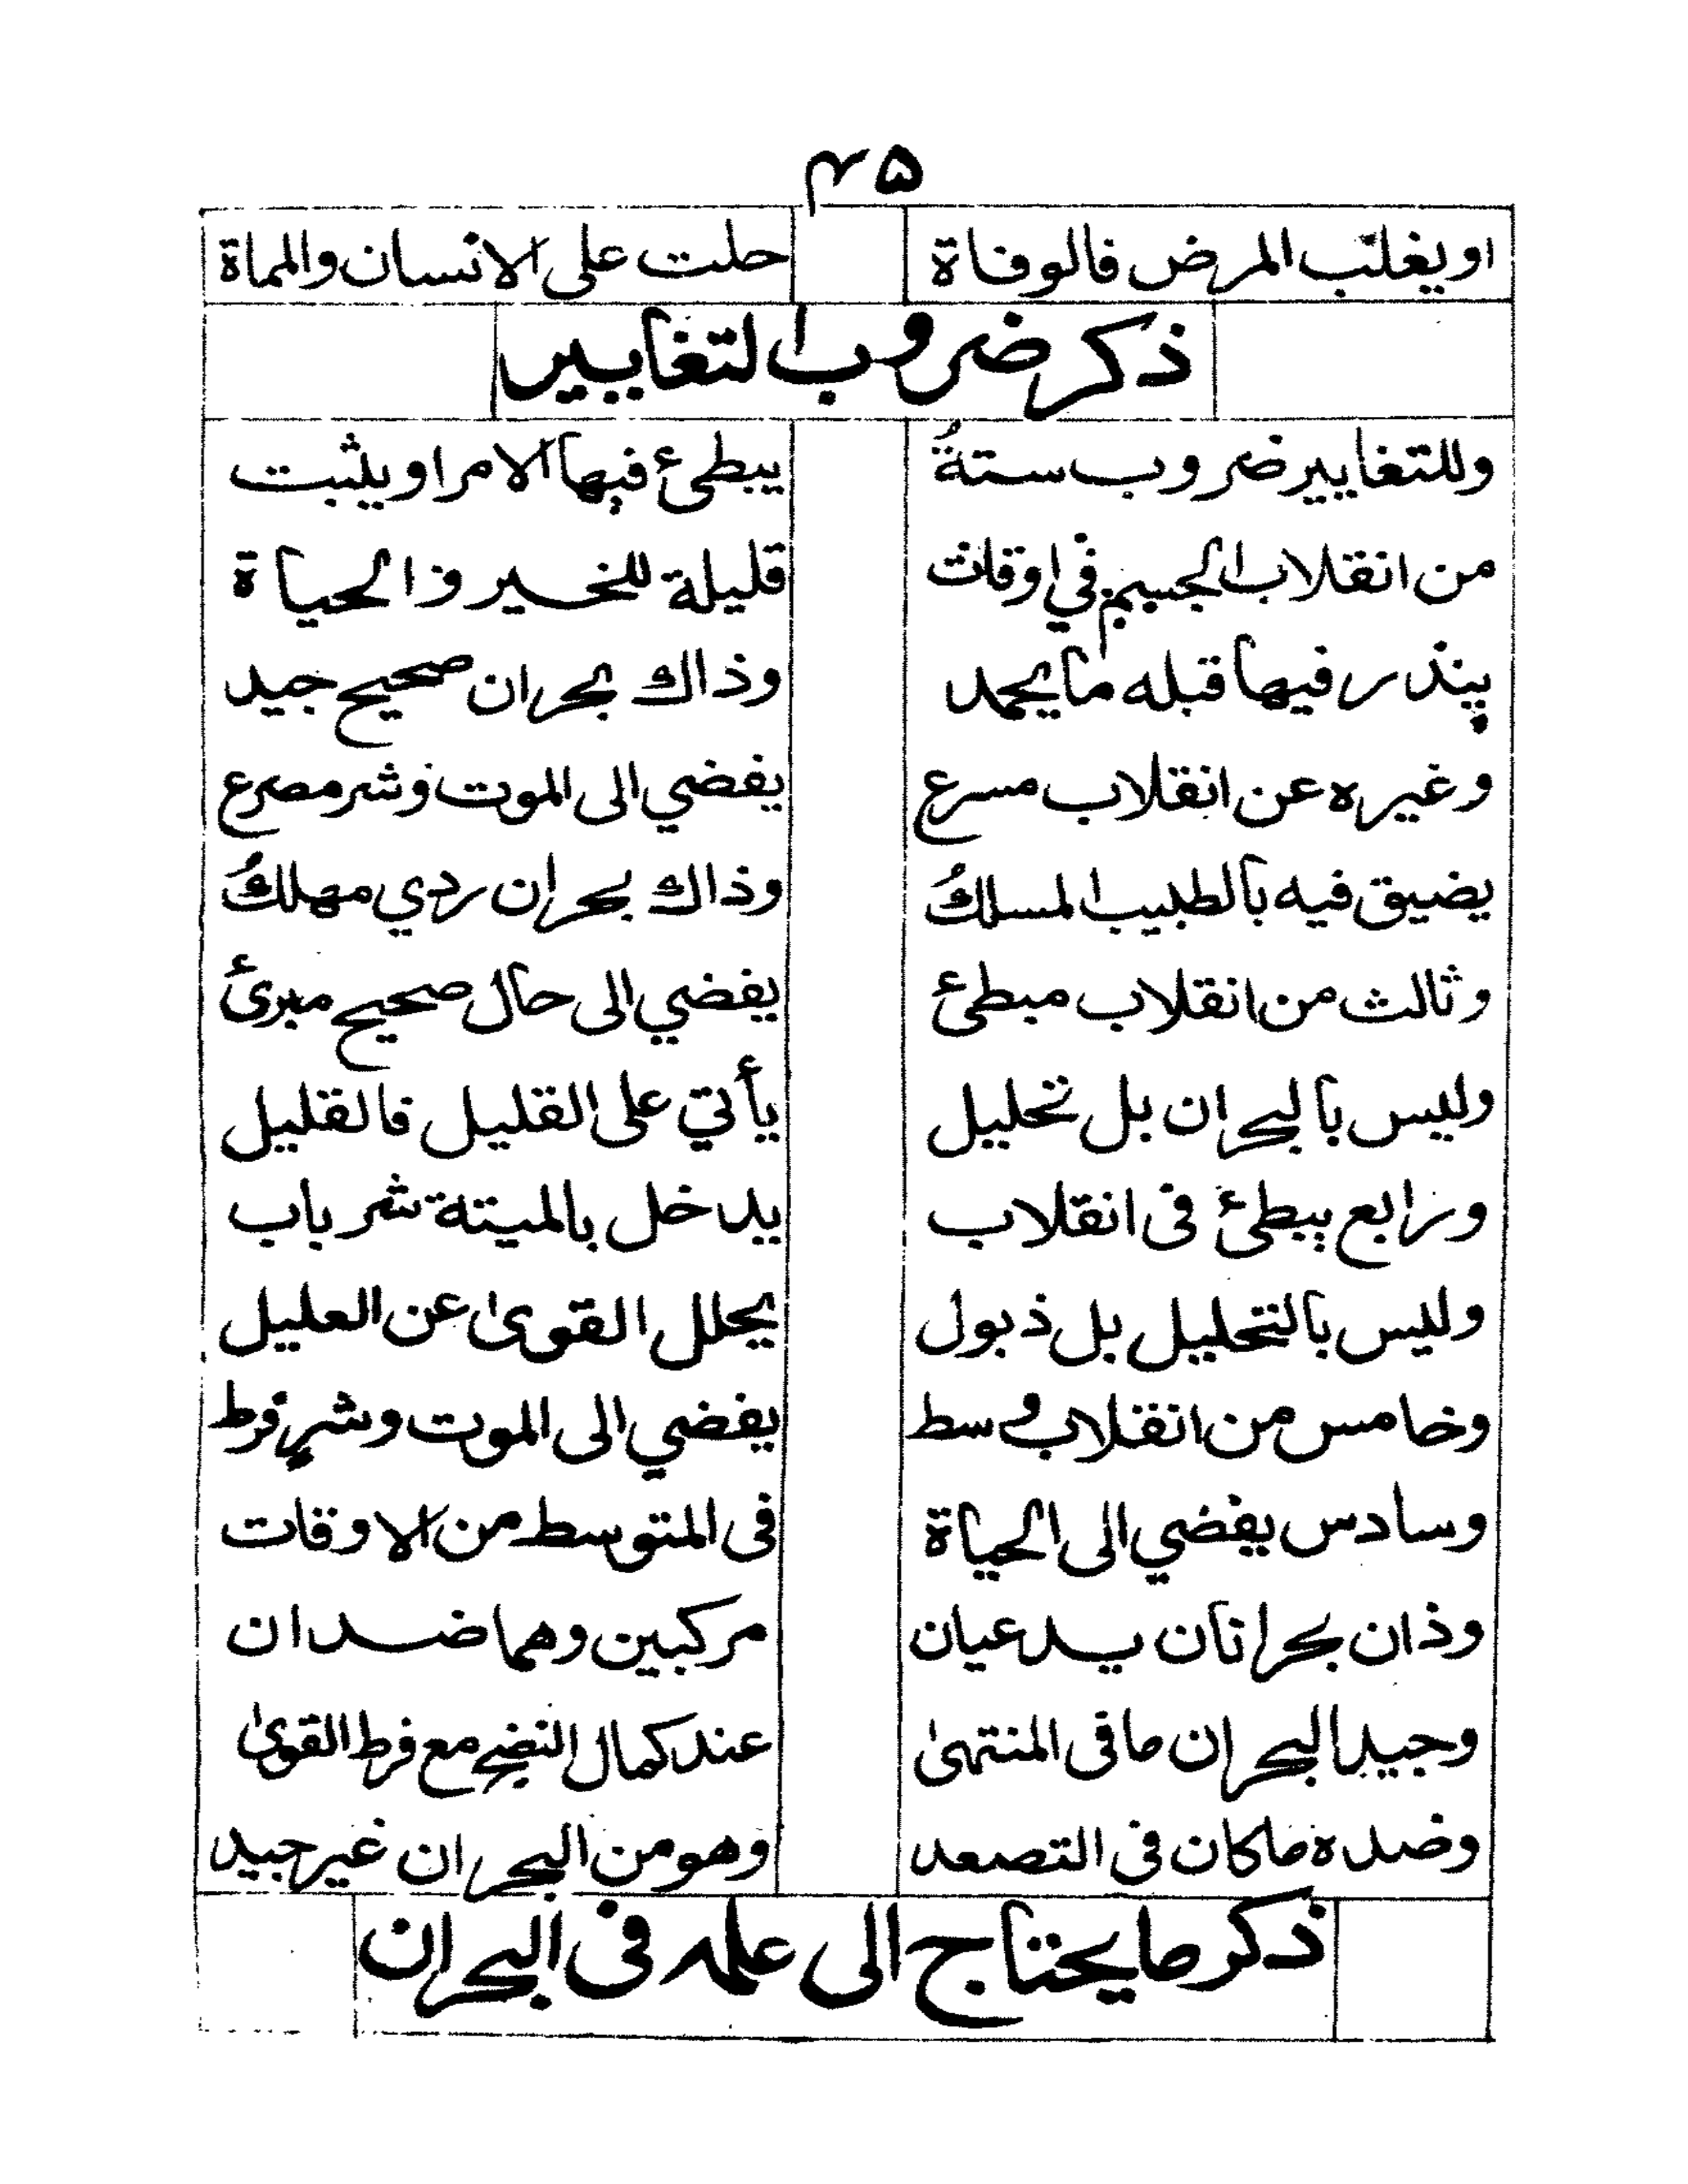 ۴۵
او يغلب المرض فالوفاة حلت على الانسان والمماة
ذكر ضروب التغايير
وللتغايير ضروب ستةُ يبطئ فيها الامر او يلثبت
من انقلاب الجسم في اوقات قليلة للخير والحياة
ينذر فيها قبله ما يحمد وذاك بحران صحيح جيد
وغيره عن انقلاب مسرع يفضي الى الموت وشر مصرع
يضيق فيه بالطبيب المسلكُ وذاك بحران ردي مهلكُ
وثالث من انقلاب مبطئ يفضي الى حال صحيح مبرئ
وليس بالبحران بل تحليل يأتي على القليل فالقليل
ورابع يبطئ فى انقلاب يدخل بالميتة شر باب
وليس بالتحليل بل ذبول يحلل القوىٰ عن العليل
وخامس من انقلاب وسط يفضي الى الموت وشرٍ فرط
وسادس يفضي الى الحياة فى المتوسط من الاوقات
وذان بحرانان يدعيان مركبين وهما ضدان
وجيد البحران ما فى المنتهىٰ عند كمال النضج مع فرط القوىٰ
وضده ما كان فى التصعد وهو من البحران غير جيد
ذكر ما يحتاج الى علمه فى البحران